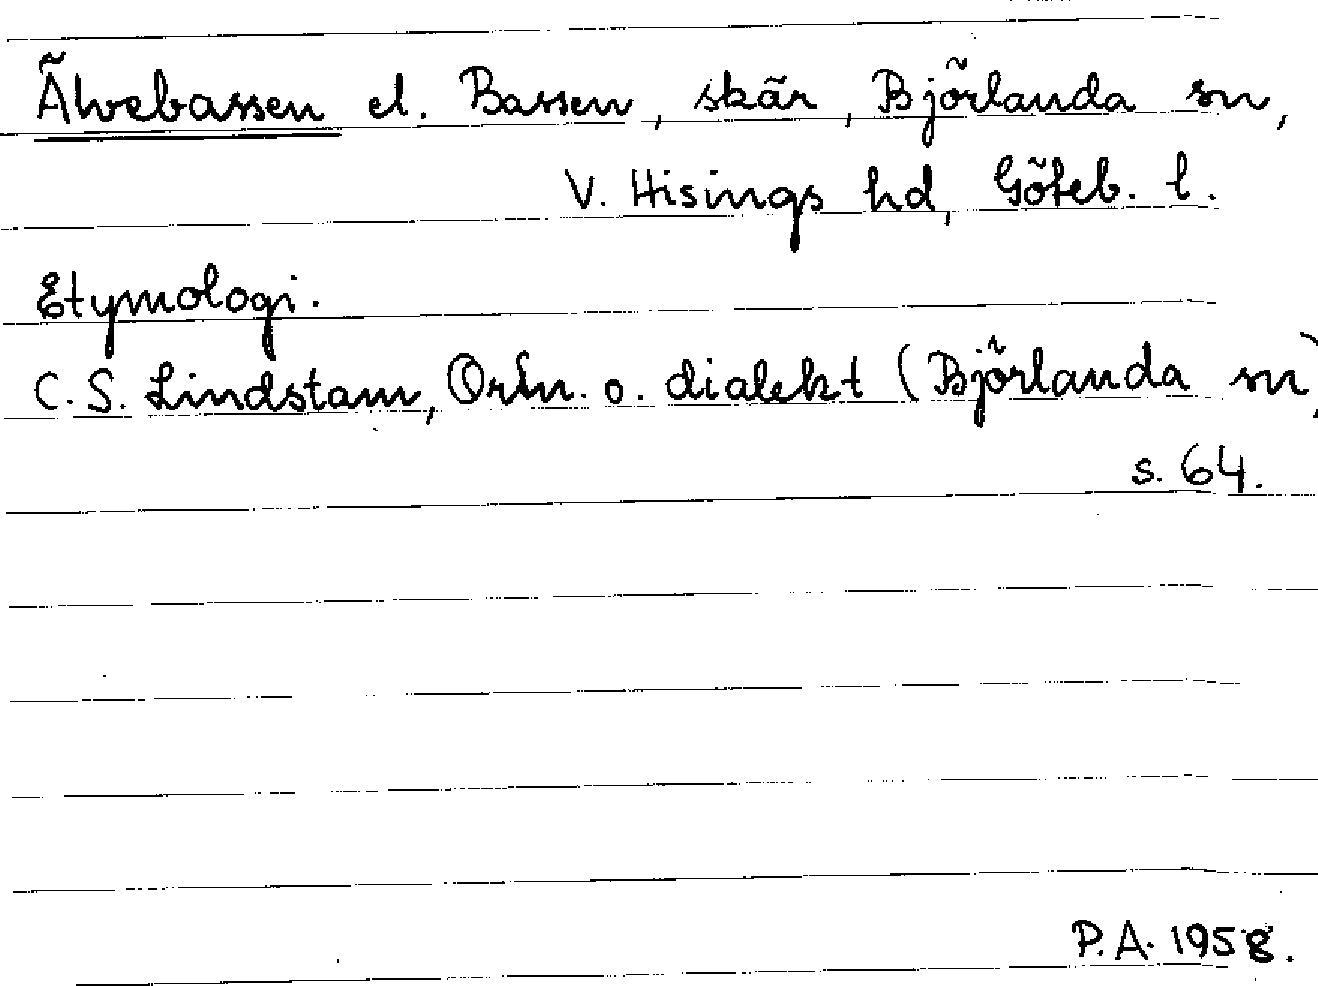 Älvebassen el. Bassen, skär, Björlanda sn,
V. Hisings hd, Göteb. l.
Etymologi.
C. S. Lindstam, Ortn. o. dialekt (Björlanda sn),
s. 64.
P.A. 1958.